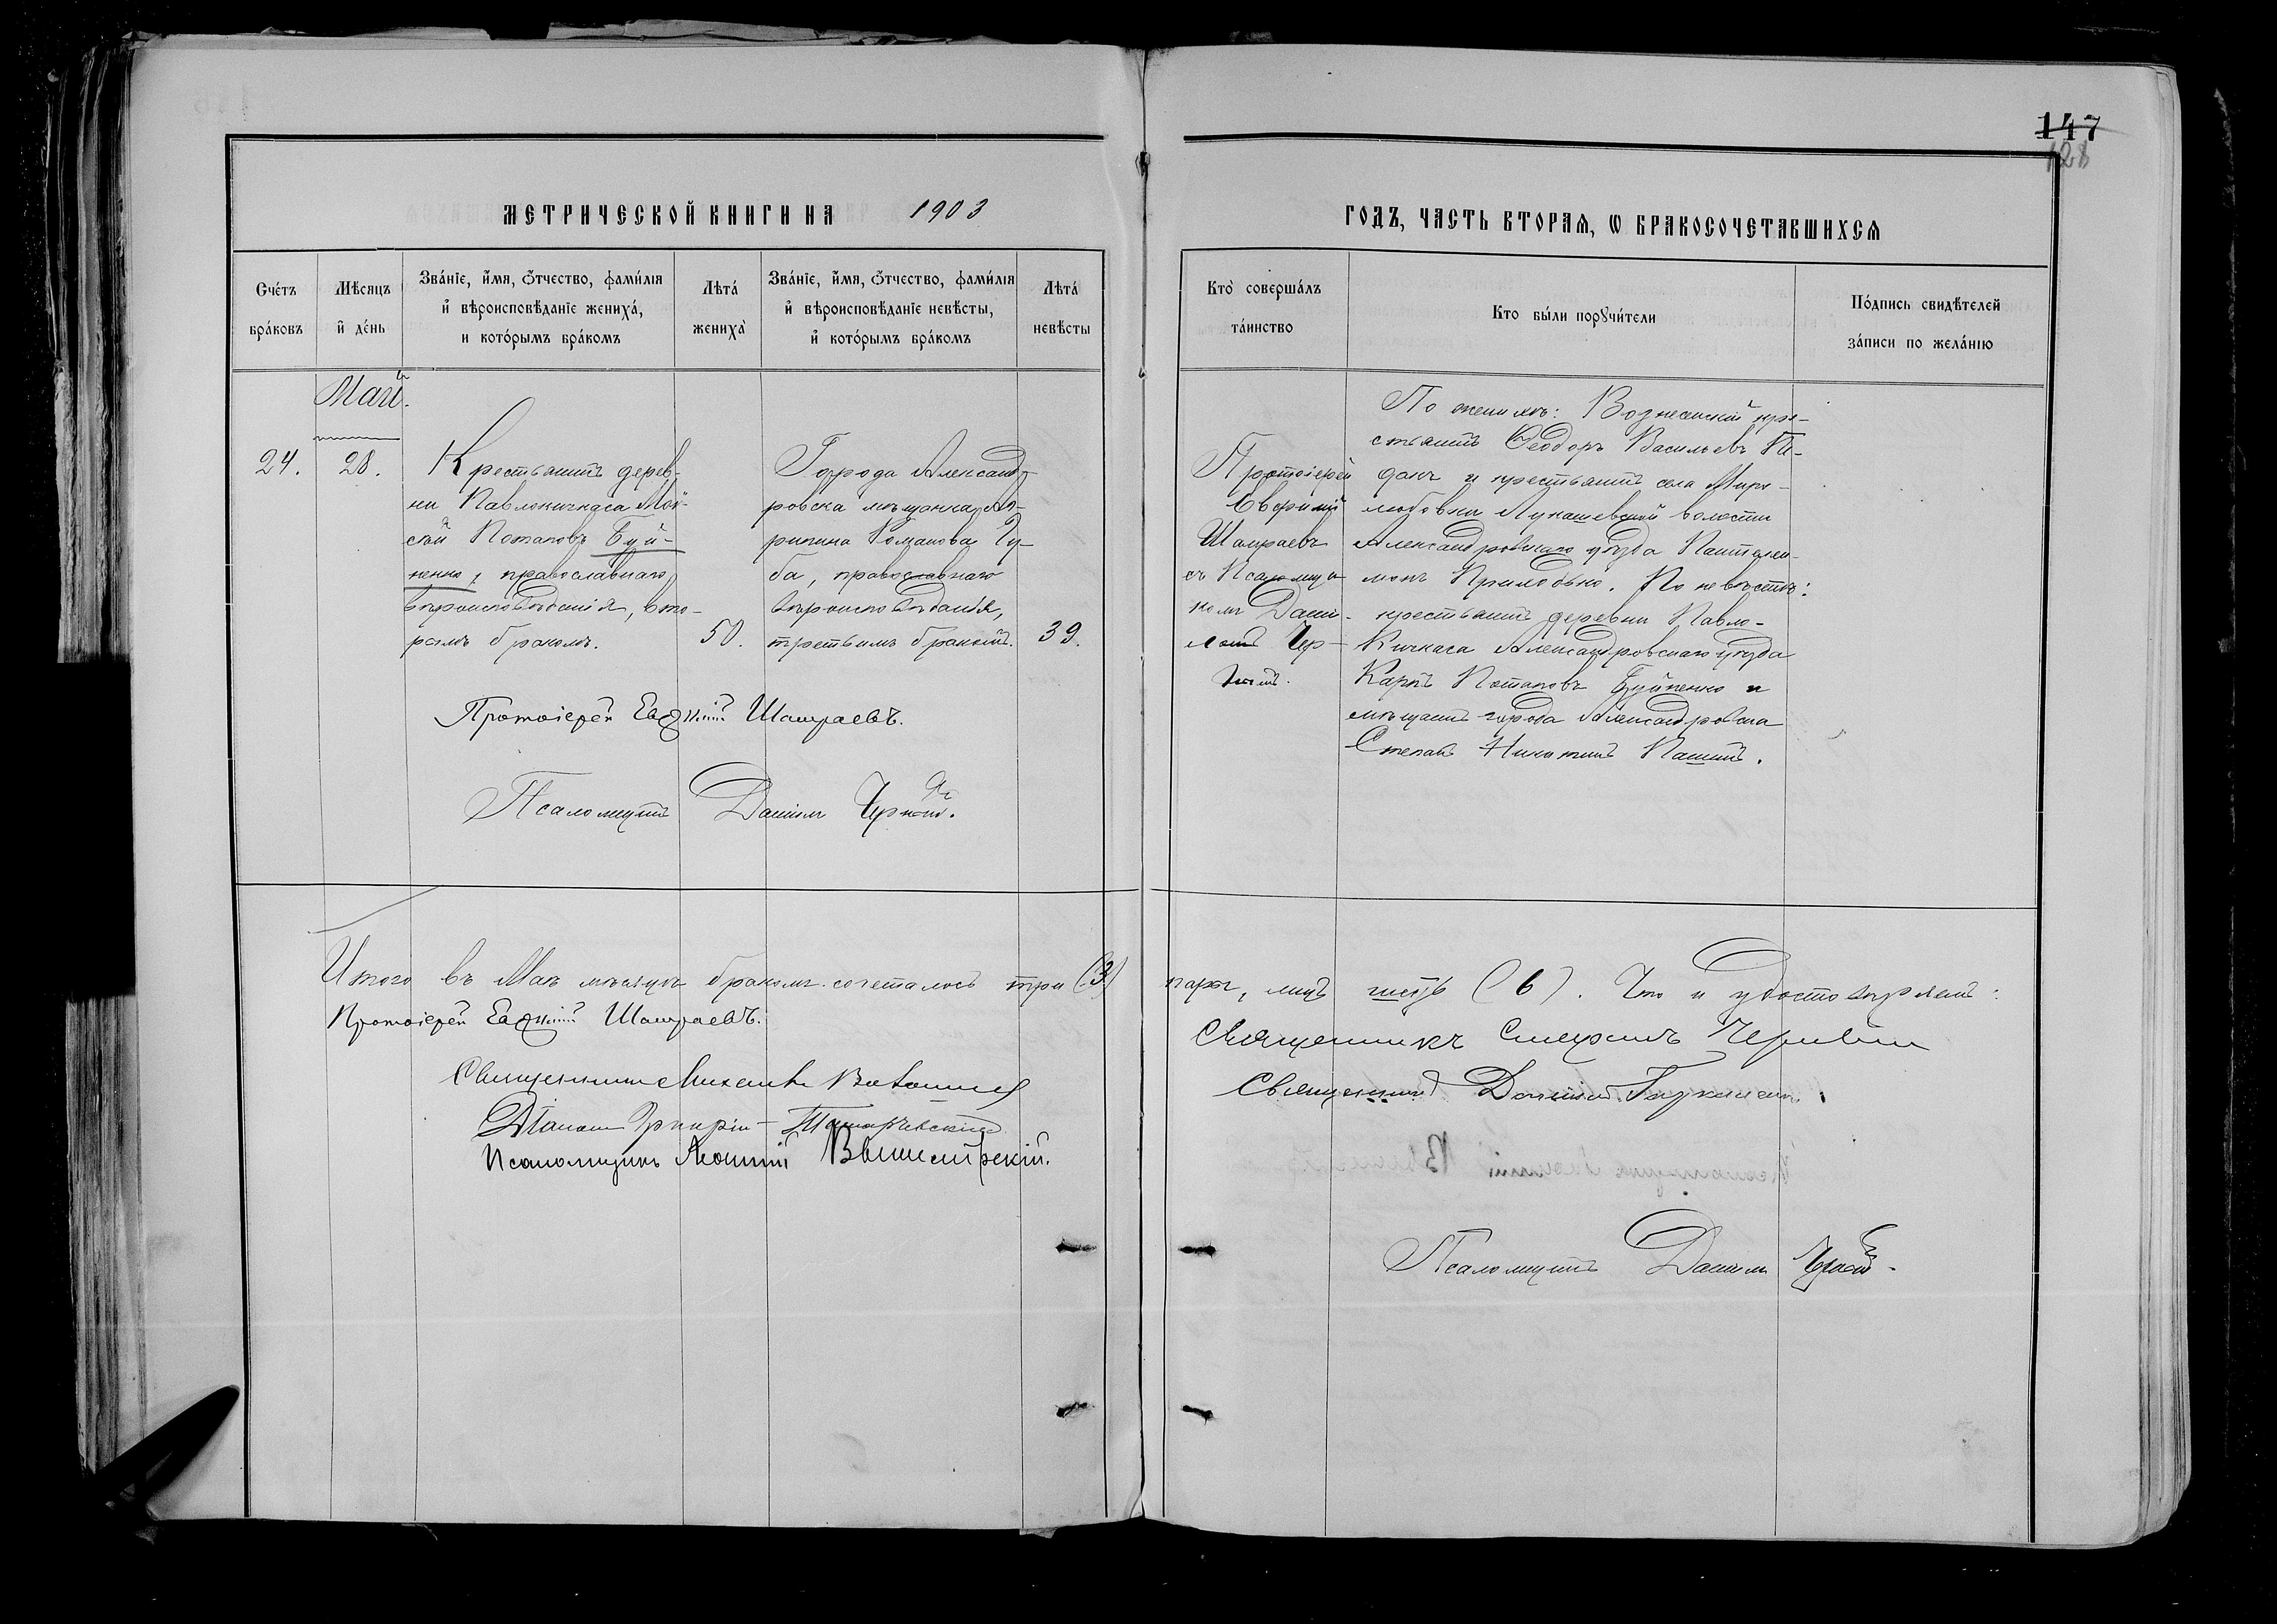 147
128
МЕТРИЧЕСКОЙ КНИГИ НА 1903
ГОДЪ, ЧАСТЬ ВТОРАѦ, Ѡ БРАКОСОЧЕТАВШИХСѦ
Счéтъ
брáковъ
Мѣсяцъ
и҆ дéнь
Звáнїе, и҆́мя, ѻ҆́тчество, фамѝлїя
и҆ вѣроисповѣ́данїе женихá,
и котóрымъ брáкомъ
Лѣтá
женихà
Звáнїе, и҆́мя, ѻ҆́тчество, фамѝлїя
и҆ вѣроисповѣ́данїе невѣ́сты,
и҆ котóрымъ брáкомъ
Лѣтá
невѣ́сты
Кто̀ совершáлъ
тáинство
Кто бы́ли порꙋчи́тели
Пóдпись свидѣ́телей
зáписи по желáнїю
Май.
24.
28.
Крестьянинъ дерев-
ни Павлокичкаса Мой-
сей Потаповъ Буй-
ненко, православнаго
вѣроисповѣданія, вто-
рымъ бракомъ.
50.
Города Александ-
ровска мѣщанка Ма-
рина Романова Гу-
ба, православнаго
вѣроисповѣданія,
третьимъ бракомъ.
39.
Протоіерей
Евфимій
Шамраевъ
съ Псаломщи-
комъ Дани-
ломъ Чер-
нымъ.
По женихѣ: Вознесенскій кре-
стьянинъ Ѳеодоръ Васильевъ Пи-
данъ и крестьянинъ села Миро-
любовки Лукашевской волости
Александровскаго уѣзда Пантелей-
монъ . По невѣстѣ:
крестьянинъ деревни Павло-
Кичкаса Александровскаго уѣзда
Карпъ Потаповъ Буйненко и
мѣщанинъ города Александровска
Степанъ Никитинъ Пашинъ.
Протоіерей Евфимій Шамраевъ.
Псаломщикъ Даніилъ Черный.
Итого въ Маѣ мѣсяцѣ бракомъ сочеталось три (3)
пары, лицъ шесть (6). Что и удостовѣряемъ:
Протоіерей Евфимій Шамраевъ.
Священникъ
Священникъ
Священникъ
Діаконъ Григорій
Псаломщикъ
Псаломщикъ Даніилъ Черный.